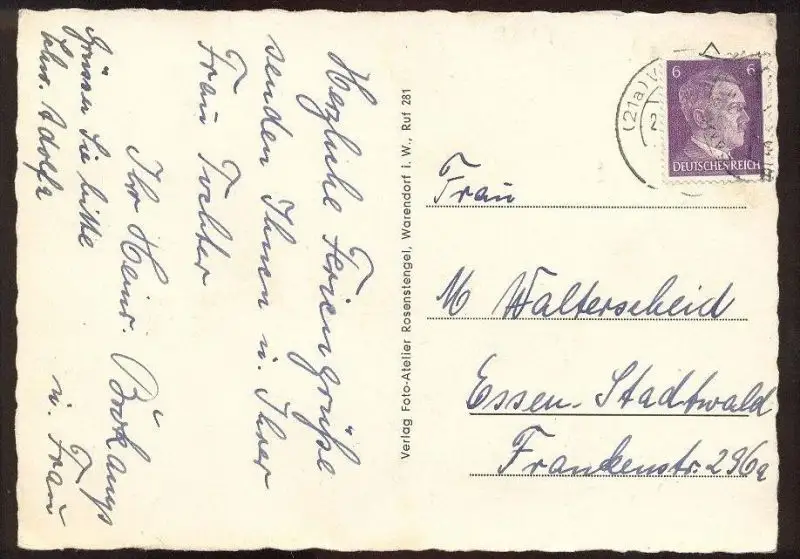 Herzliche Feriengrüße
senden Ihnen u. Ihrer
Frau Tochter
Ihr Heinr. Brokamp
u. Frau
Grüssen Sie bitte
Schw. Adolfa
Verlag Foto-Atelier Rosenstengel, Warendorf i. W., Ruf 281
(21a)
6 6
DEUTSCHES REICH
Frau
M Walterscheid
Essen-Stadtwald
Frankenstr. 296a